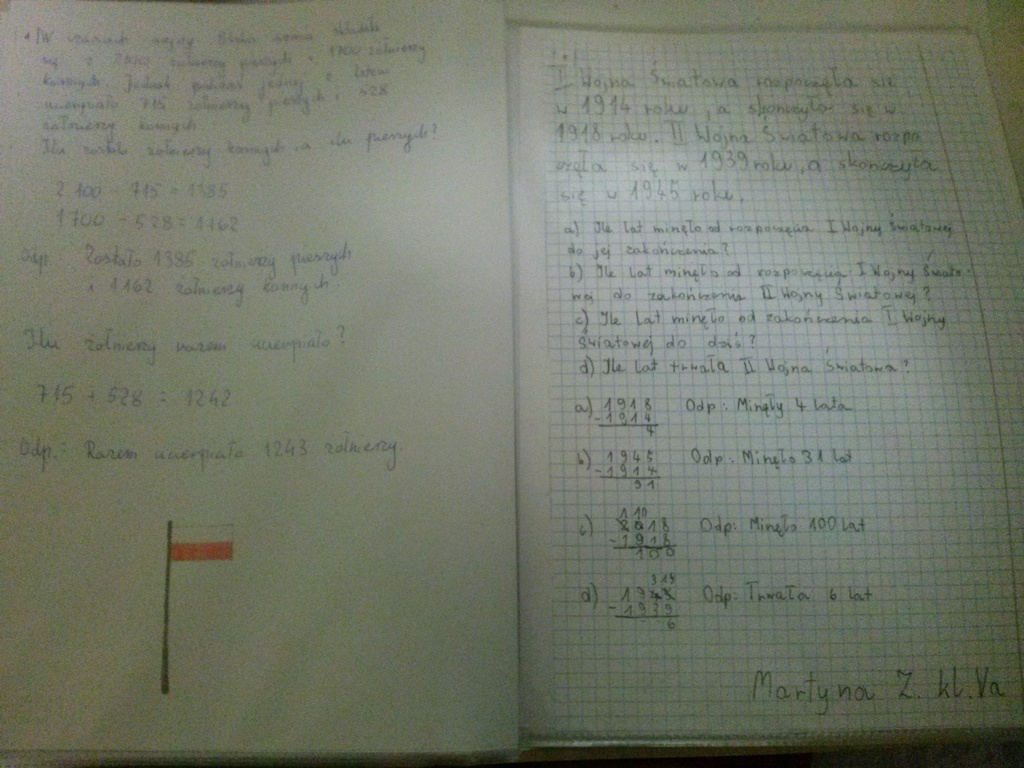 W czasach wojny składała
się z 2100 żołnierzy pieszych i 1700 żołnierzy
konnych. Jednak podczas jednej z
ucierpiało 715 żołnierzy pieszych i 528
żołnierzy konnych.
Ilu zostało żołnierzy konnych, a ilu pieszych?
2 100 - 715 = 1385
1700 - 528 = 1162
Odp.: Zostało 1385 żołnierzy pieszych
i 1162 żołnierzy konnych.
Ilu żołnierzy razem ucierpiało?
715 + 528 = 1242
Odp.: Razem ucierpiało 1243 żołnierzy.
I Wojna Światowa rozpoczęła się
w 1914 roku, a skończyła się w
1918 roku. II Wojna Światowa rozpo
częła się w 1939 roku, a skończyła
się w 1945 roku.
a) Ile lat minęło od rozpoczęcia I Wojny Światowej
do jej zakończenia?
b) Ile lat minęło od rozpoczęcia I Wojny Świato-
wej do zakończenia II Wojny Światowej?
c) Ile lat minęło od zakończenia I Wojny
Światowej do dziś?
d) Ile lat trwała II Wojna Światowa?
a) 1918 Odp: Minęły 4 lata
- 1914
4
b) 1945 Odp: Minęło 31 lat
- 1914
31
1 10
c) 2018 Odp: Minęło 100 lat
- 1918
100
3 15
d) 1945 Odp: Trwała 6 lat
- 1939
6
Martyna Z. kl. Va